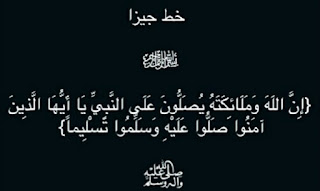 خط جيزا
﷽
{إِنَّ اللَّهَ وَمَلَائِكَتَهُ يُصَلُّونَ عَلَى النَّبِيِّ يَا أَيُّهَا الَّذِينَ
آمَنُوا صَلُّوا عَلَيْهِ وَسَلِّمُوا تَسْلِيماً}
صلى الله عليه وآله وسلم